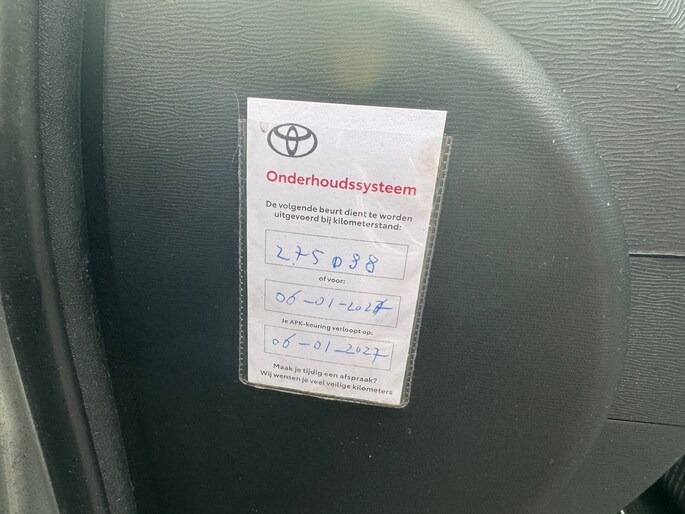 Onderhoudssysteem
De volgende beurt dient te worden
uitgevoerd bij kilometerstand:
275088
of voor:
06-01-2027
Je APK-keuring verloopt op:
06-01-2027
Maak je tijdig een afspraak?
Wij wensen je veel veilige kilometers